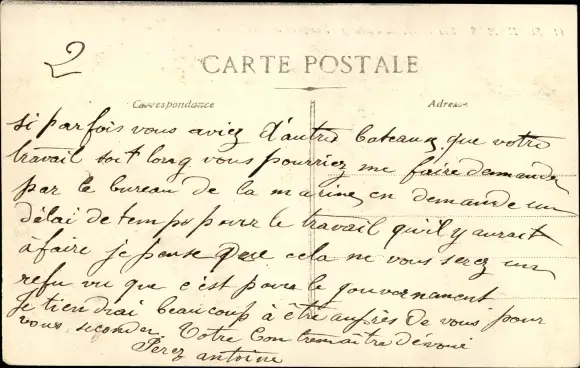 2
CARTE POSTALE
Correspondance
Adresse
si parfois vous aviez d'autres bateaux que votre
travail soit long vous pourriez me faire demander
par le bureau de la marine en demande un
délai de temps pour le travail qu'il y aurait
à faire je pense que cela ne vous serez un
refu vu que c'est pour le gouvernament
Je tiendrai beaucoup à être auprès de vous pour
vous seconder Votre Contremaître dévoué
Perez antoine